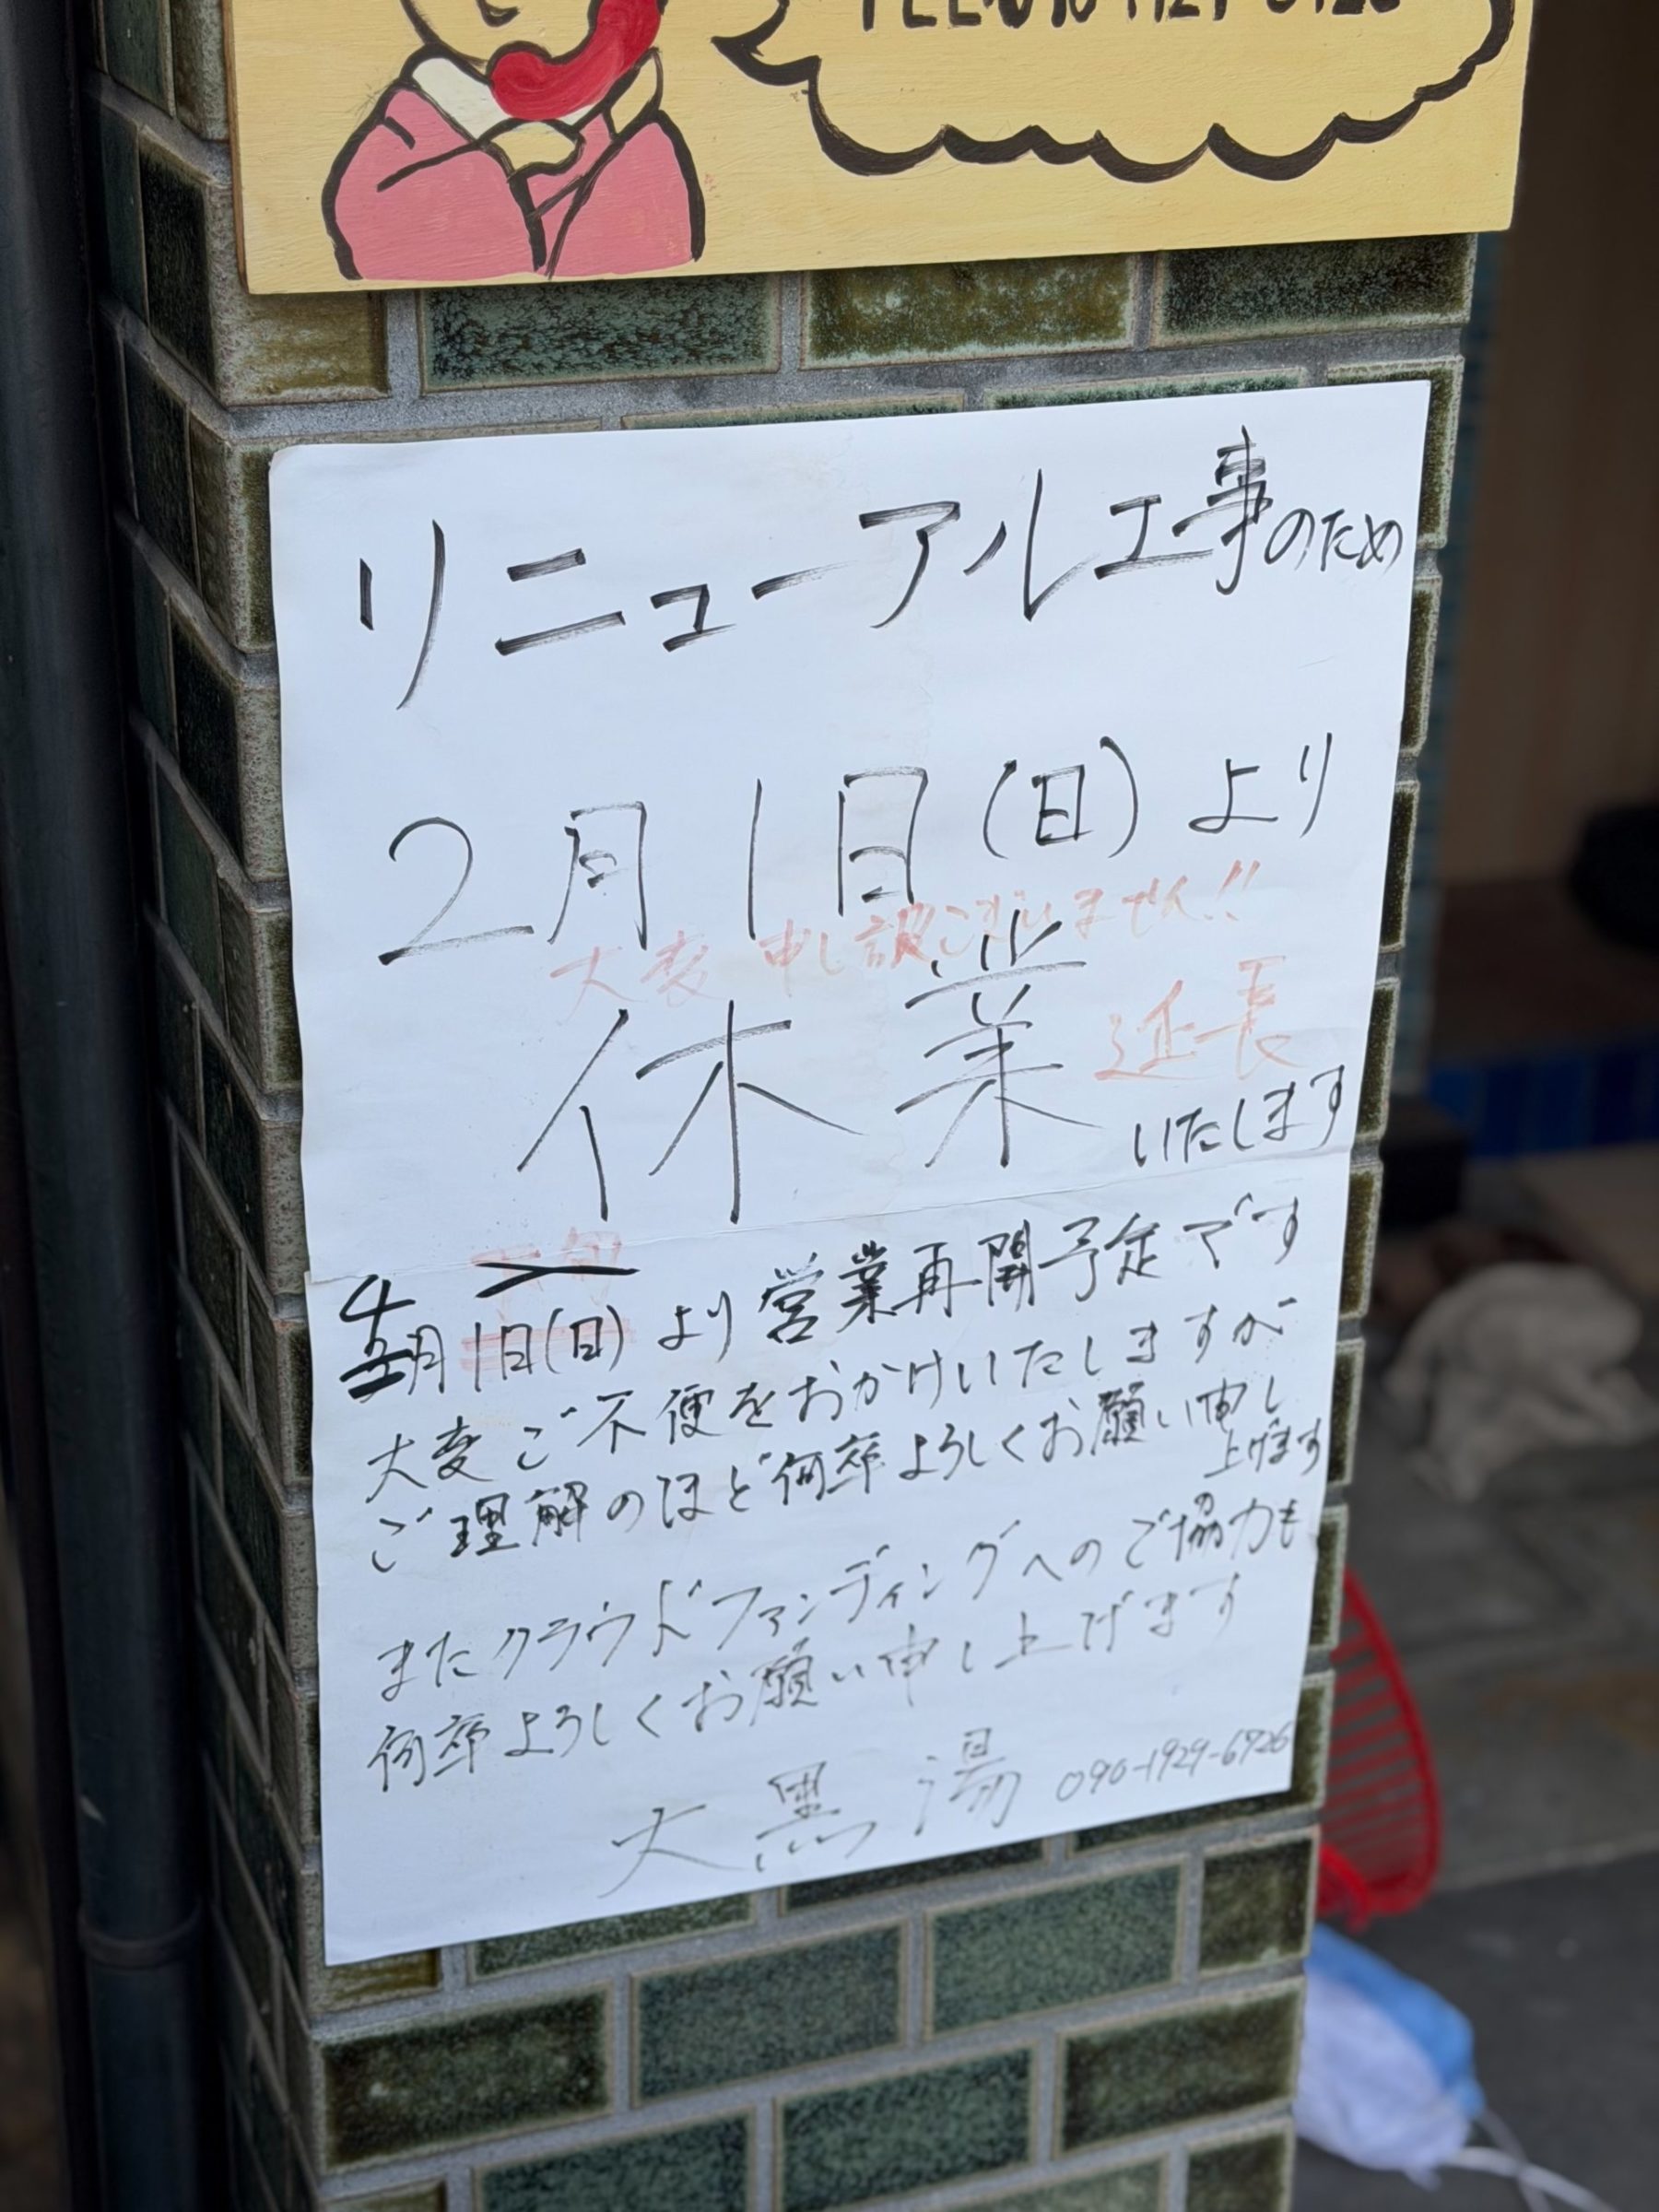 リニューアル工事のため
2月1日(日)より
大変申し訳ございません!!
休業 延長
いたします
下旬
4月1日(日)より営業再開予定です
大変ご不便をおかけいたしますが
ご理解のほど何卒よろしくお願い申し
上げます
またクラウドファンディングへのご協力も
何卒よろしくお願い申し上げます
大黒湯 090-1929-6926